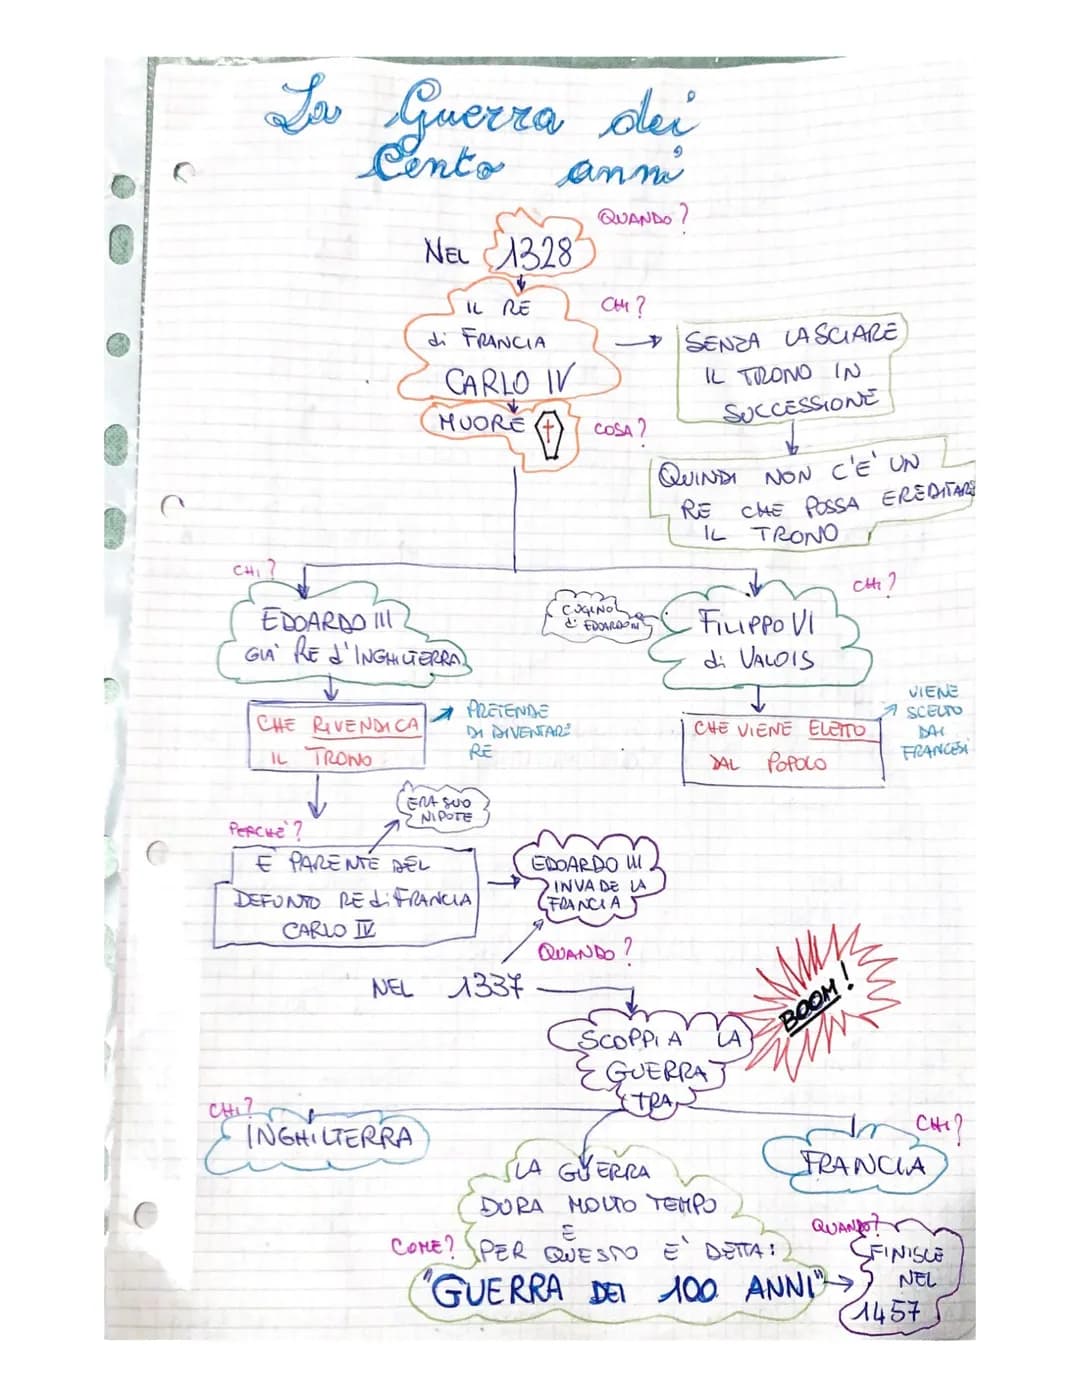 La Guerra dei
Cento anni
QUANDO?
NEL 1328
IL RE
di FRANCIA
CARLO IV
CHI?
MUORE
COSA?
SENZA LASCIARE
IL TRONO IN
SUCCESSIONE
QUINDI NON C'E' UN
RE CHE POSSA EREDITARE
IL TRONO
CHI?
EDOARDO III
GIA' RE d'INGHILTERRA
CHI?
CUGINO
di EDOARDO III
FILIPPO VI
di VALOIS
CHE RIVENDICA
IL TRONO
PRETENDE
DI DIVENTARE
RE
CHE VIENE ELETTO
DAL POPOLO
VIENE
SCELTO
DAI
FRANCESI
PERCHE'?
ERA SUO
NIPOTE
E' PARENTE DEL
DEFUNTO RE di FRANCIA
CARLO IV
EDOARDO III
INVADE LA
FRANCIA
QUANDO?
NEL 1337
BOOM!
SCOPPIA LA
GUERRA
TRA
CHI?
INGHILTERRA
CHI?
FRANCIA
LA GUERRA
DURA MOLTO TEMPO
E
COME? PER QUESTO E' DETTA:
"GUERRA DEI 100 ANNI"
QUANDO?
FINISCE
NEL
1457